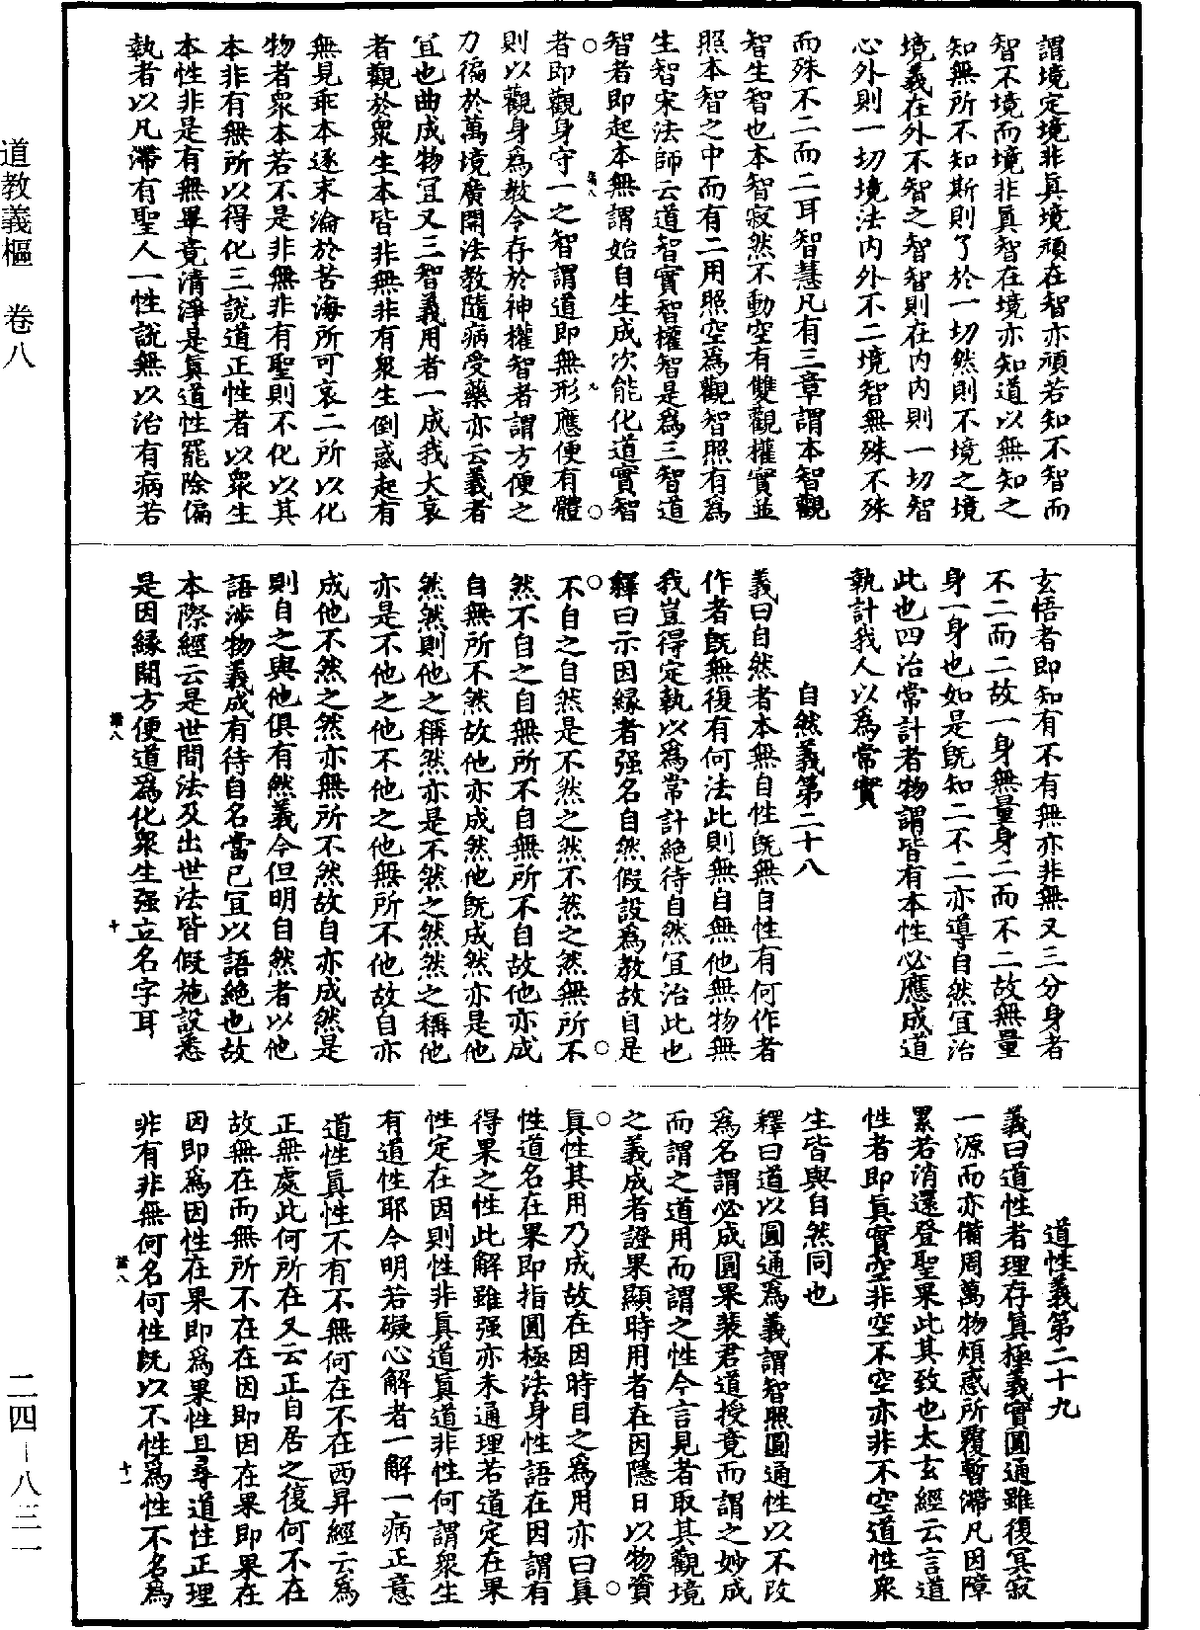 道教義樞　卷八
謂境定境非真境頑在智亦頑若知不智而
智不境而境非真智在境亦知道以無知之
知無所不知斯則了於一切然則不境之境
境義在外不智之智智則在內內則一切智
心外則一切境法內外不二境智無殊不殊
而殊不二而二耳智慧凡有三章謂本智觀
智生智也本智寂然不動空有雙觀權實並
照本智之中而有二用照空爲觀智照有爲
生智宋法師云道智實智權智是爲三智道
智者即起本無謂始自生成次能化道實智
者即觀身守一之智謂道即無形應便有體
則以觀身爲教令存於神權智者謂方便之
力徧於萬境廣開法教隨病受藥亦云義者
宜也曲成物宜又三智義用者一成我大哀
者觀於衆生本皆非無非有衆生倒惑起有
無見乖本逐末淪於苦海所可哀二所以化
物者衆本若不是非無非有聖則不化以其
本非有無所以得化三說道正性者以衆生
本性非是有無畢竟清淨是真道性罷除偏
執者以凡滯有聖人一性說無以治有病若
玄悟者即知有不有無亦非無又三分身者
不二而二故一身無量身二而不二故無量
身一身也如是既知二不二亦導自然宜治
此也四治常計者物謂皆有本性必應成道
執計我人以爲常實
自然義第二十八
義曰自然者本無自性既無自性有何作者
作者既無復有何法此則無自無他無物無
我豈得定執以爲常計絕待自然宜治此也
釋曰示因緣者强名自然假設爲教故自是
不自之自然是不然之然不然之然無所不
然不自之自無所不自無所不自故他亦成
自無所不然故他亦成然他既成然亦是他
然然則他之稱然亦是不然之然然之稱他
亦是不他之他不他之他無所不他故自亦
成他不然之然亦無所不然故自亦成然是
則自之與他俱有然義今但明自然者以他
語涉物義成有待自名當己宜以語絕也故
本際經云是世間法及出世法皆假施設悉
是因緣開方便道爲化衆生强立名字耳
道性義第二十九
義曰道性者理存真極義實圓通雖復冥寂
一源而亦備周萬物煩惑所覆暫滯凡因障
累若消還登聖果此其致也太玄經云言道
性者即真實空非空不空亦非不空道性衆
生皆與自然同也
釋曰道以圓通爲義謂智照圓通性以不改
爲名謂必成圓果裴君道授竟而謂之妙成
而謂之道用而謂之性今言見者取其觀境
之義成者證果顯時用者在因隱日以物資
真性其用乃成故在因時目之爲用亦曰真
性道名在果即指圓極法身性語在因謂有
得果之性此解雖强亦未通理若道定在果
性定在因則性非真道真道非性何謂衆生
有道性耶今明若礙心解者一解一病正意
道性真性不有不無何在不在西昇經云爲
正無處此何所在又云正自居之復何不在
故無在而無所不在在因即因在果即果在
因即爲因性在果即爲果性且尋道性正理
非有非無何名何性既以不性爲性不名爲
二四－八三一